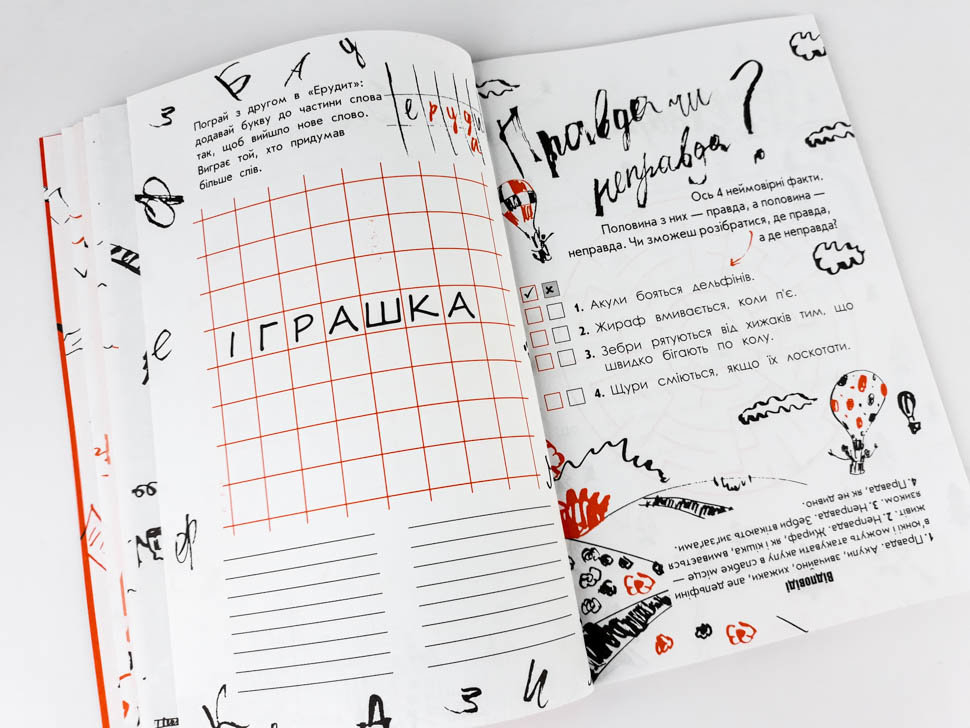 Б А У
З
Пограй з другом в «Ерудит»:
додавай букву до частини слова
так, щоб вийшло нове слово.
Виграє той, хто придумав
більше слів.
е р у д и
а
е
І Г Р А Ш К А
ф
А З И
Правда чи
неправда?
Ось 4 неймовірні факти.
Половина з них — правда, а половина —
неправда. Чи зможеш розібратися, де правда,
а де неправда!
1. Акули бояться дельфінів.
2. Жираф вмивається, коли п'є.
3. Зебри рятуються від хижаків тим, що
швидко бігають по колу.
4. Щури сміються, якщо їх лоскотати.
Відповіді
1. Правда. Акули, звичайно, хижаки, але дельфіни
в юнкі можуть атакувати акулу в слабке місце —
живіт. 2. Неправда. Жираф, як і кішка, вмивається
язиком. 3. Неправда. Зебри втікають зиґзаґами.
4. Правда, як не дивно.